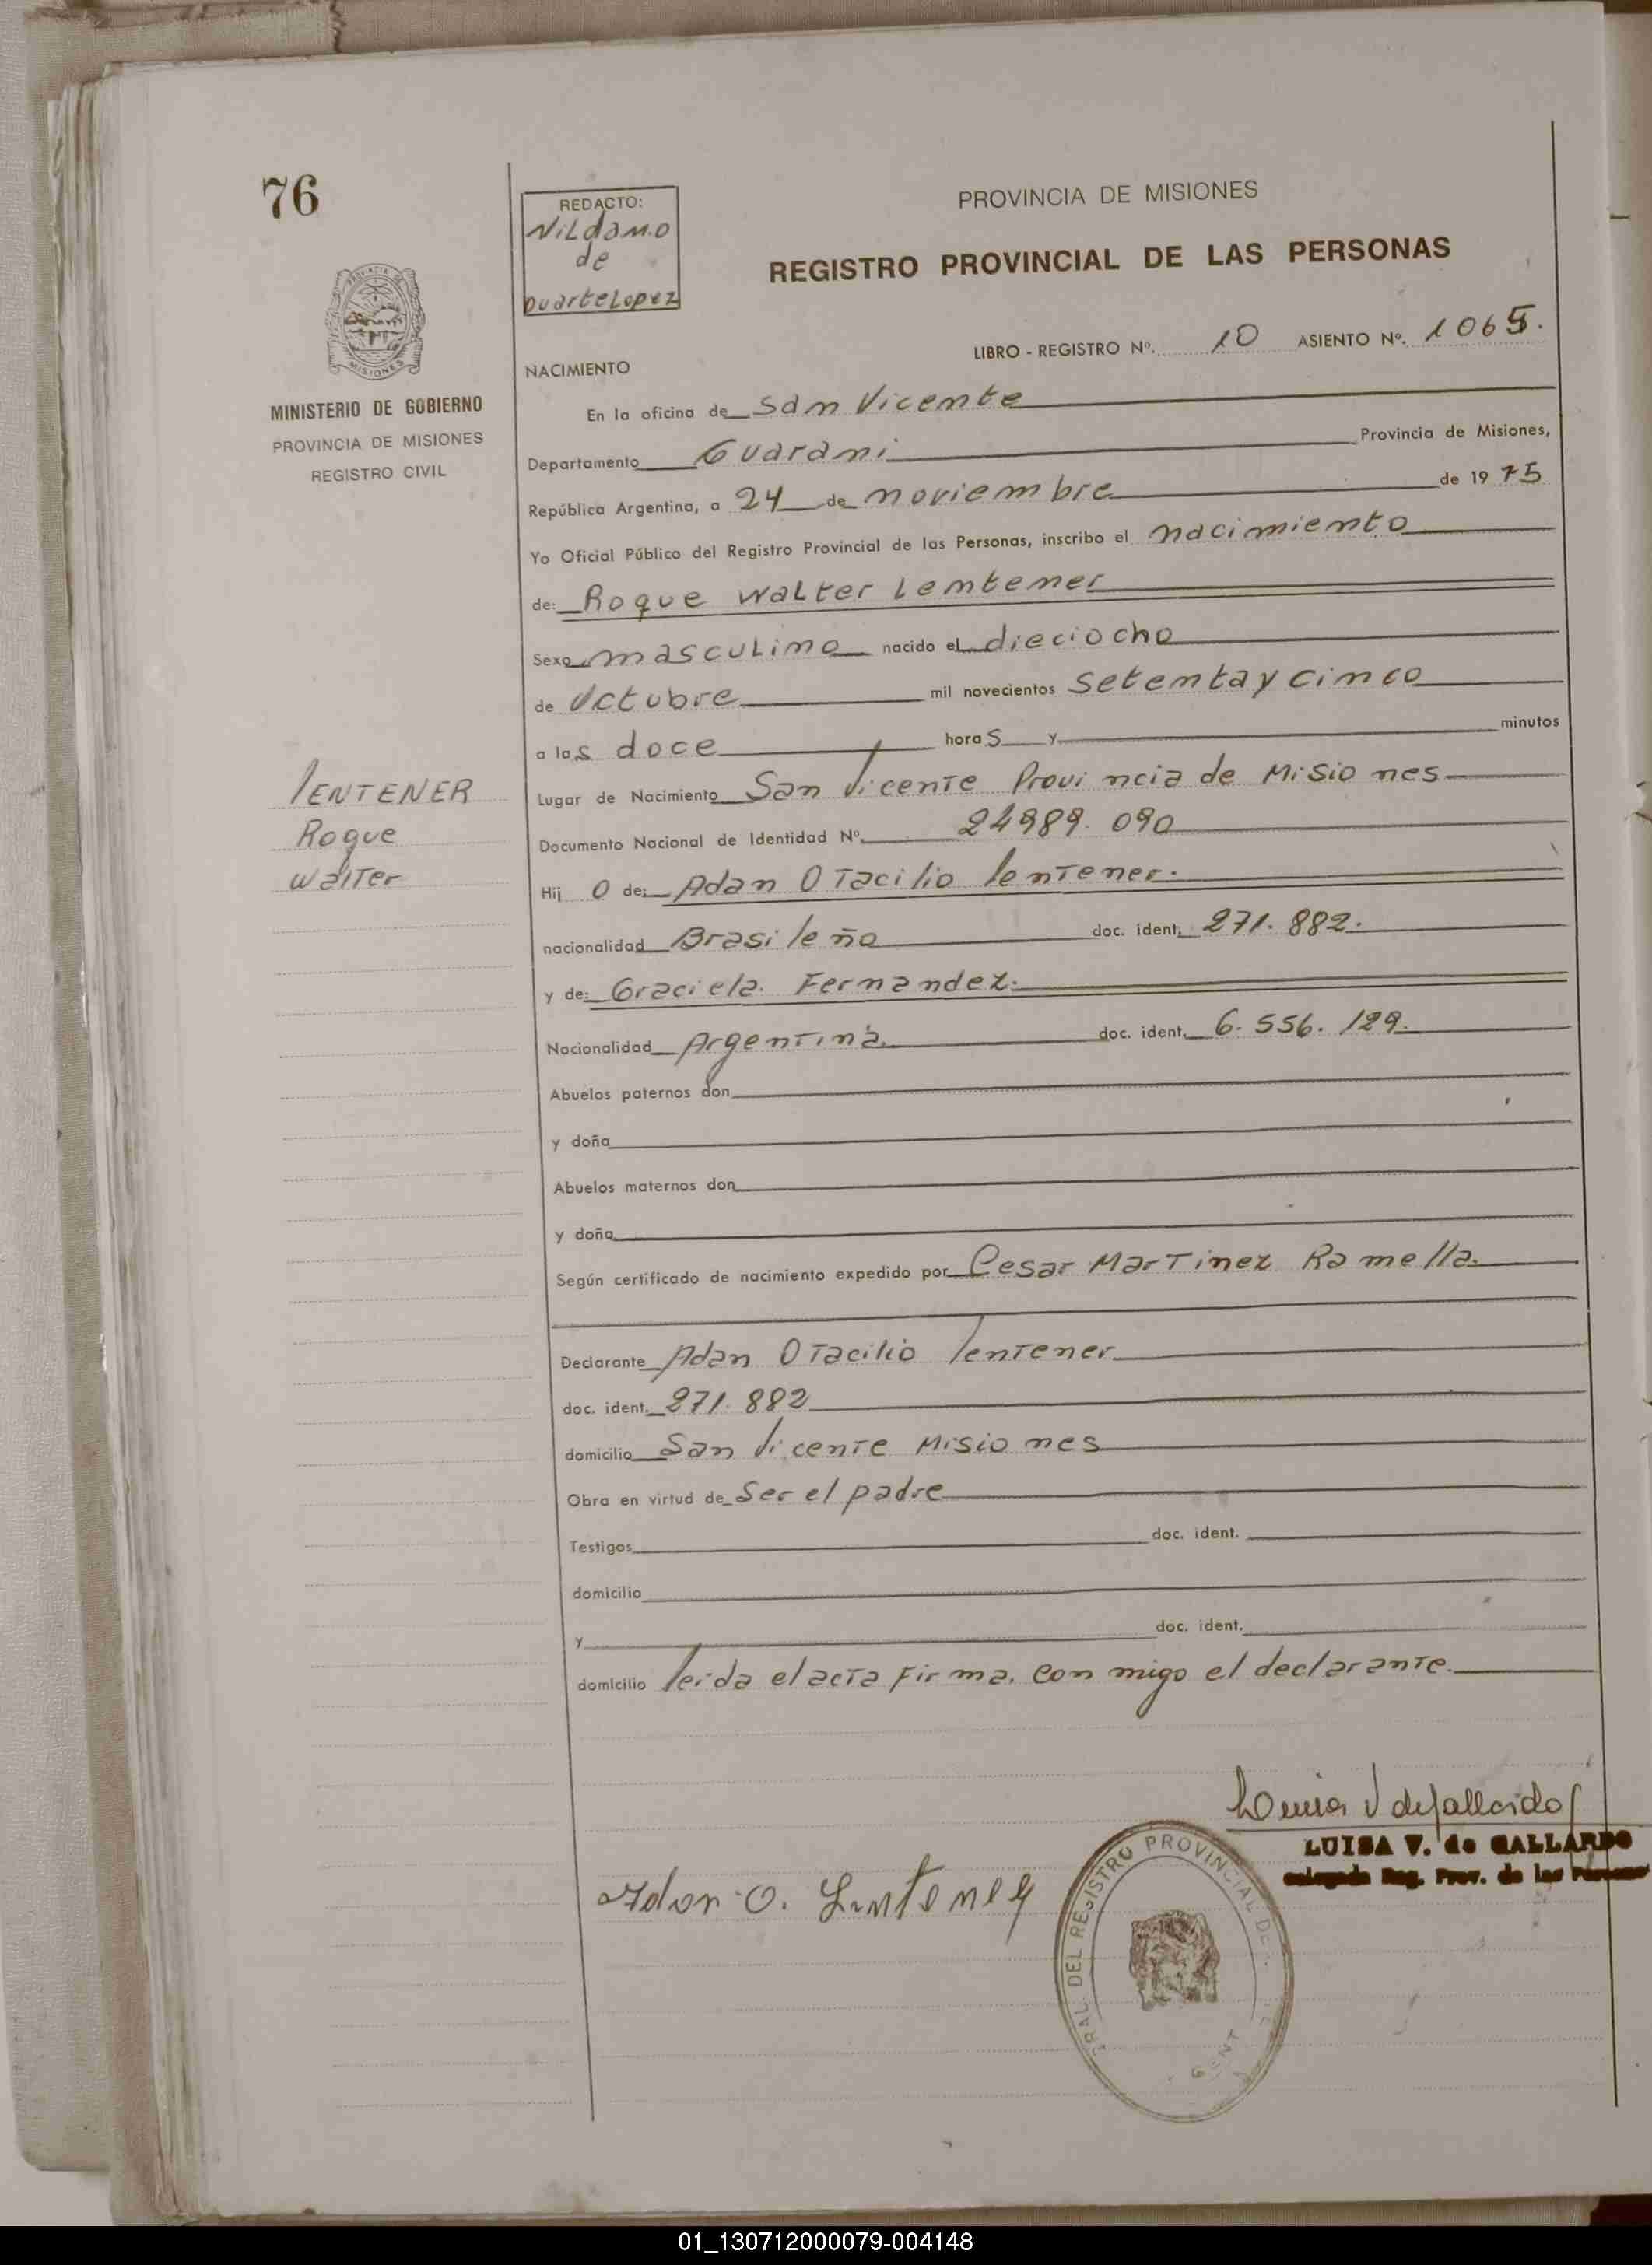 76
REDACTO:
Nildamo
de
Duarte Lopez
PROVINCIA DE MISIONES
REGISTRO PROVINCIAL DE LAS PERSONAS
MISIONES
MINISTERIO DE GOBIERNO
PROVINCIA DE MISIONES
REGISTRO CIVIL
LIBRO - REGISTRO Nº. 10 ASIENTO Nº. 1065.
NACIMIENTO
En la oficina de San Vicente
Departamento Guarani Provincia de Misiones,
República Argentina, a 24 de noviembre de 1975
Yo Oficial Público del Registro Provincial de las Personas, inscribo el nacimiento
de: Roque Walter Lentener
Sexo masculino nacido el dieciocho
de Octubre mil novecientos setenta y cinco
a las doce horas y minutos
Lugar de Nacimiento San Vicente Provincia de Misiones
Documento Nacional de Identidad Nº. 24989.090
Hijo de: Adan Otacilio lentener.
nacionalidad Brasileña doc. ident. 271.882.
y de: Graciela. Fernandez.
Nacionalidad Argentina doc. ident. 6.556.129.
Abuelos paternos don
y doña
Abuelos maternos don
y doña
Según certificado de nacimiento expedido por Cesar Martinez Ramella.
Declarante Adan Otacilio lentener
doc. ident. 271.882
domicilio San Vicente Misiones
Obra en virtud de Ser el padre
Testigos doc. ident.
domicilio
y doc. ident.
domicilio leida el acta firma. con migo el declarante.
LENTENER
Roque
Walter
Luisa V de Gallardo
LUISA V. de GALLARDO
Reg. Prov. de las
Adan O. Lentener
RAL DEL REGISTRO PROVINCIAL DE
01_130712000079-004148